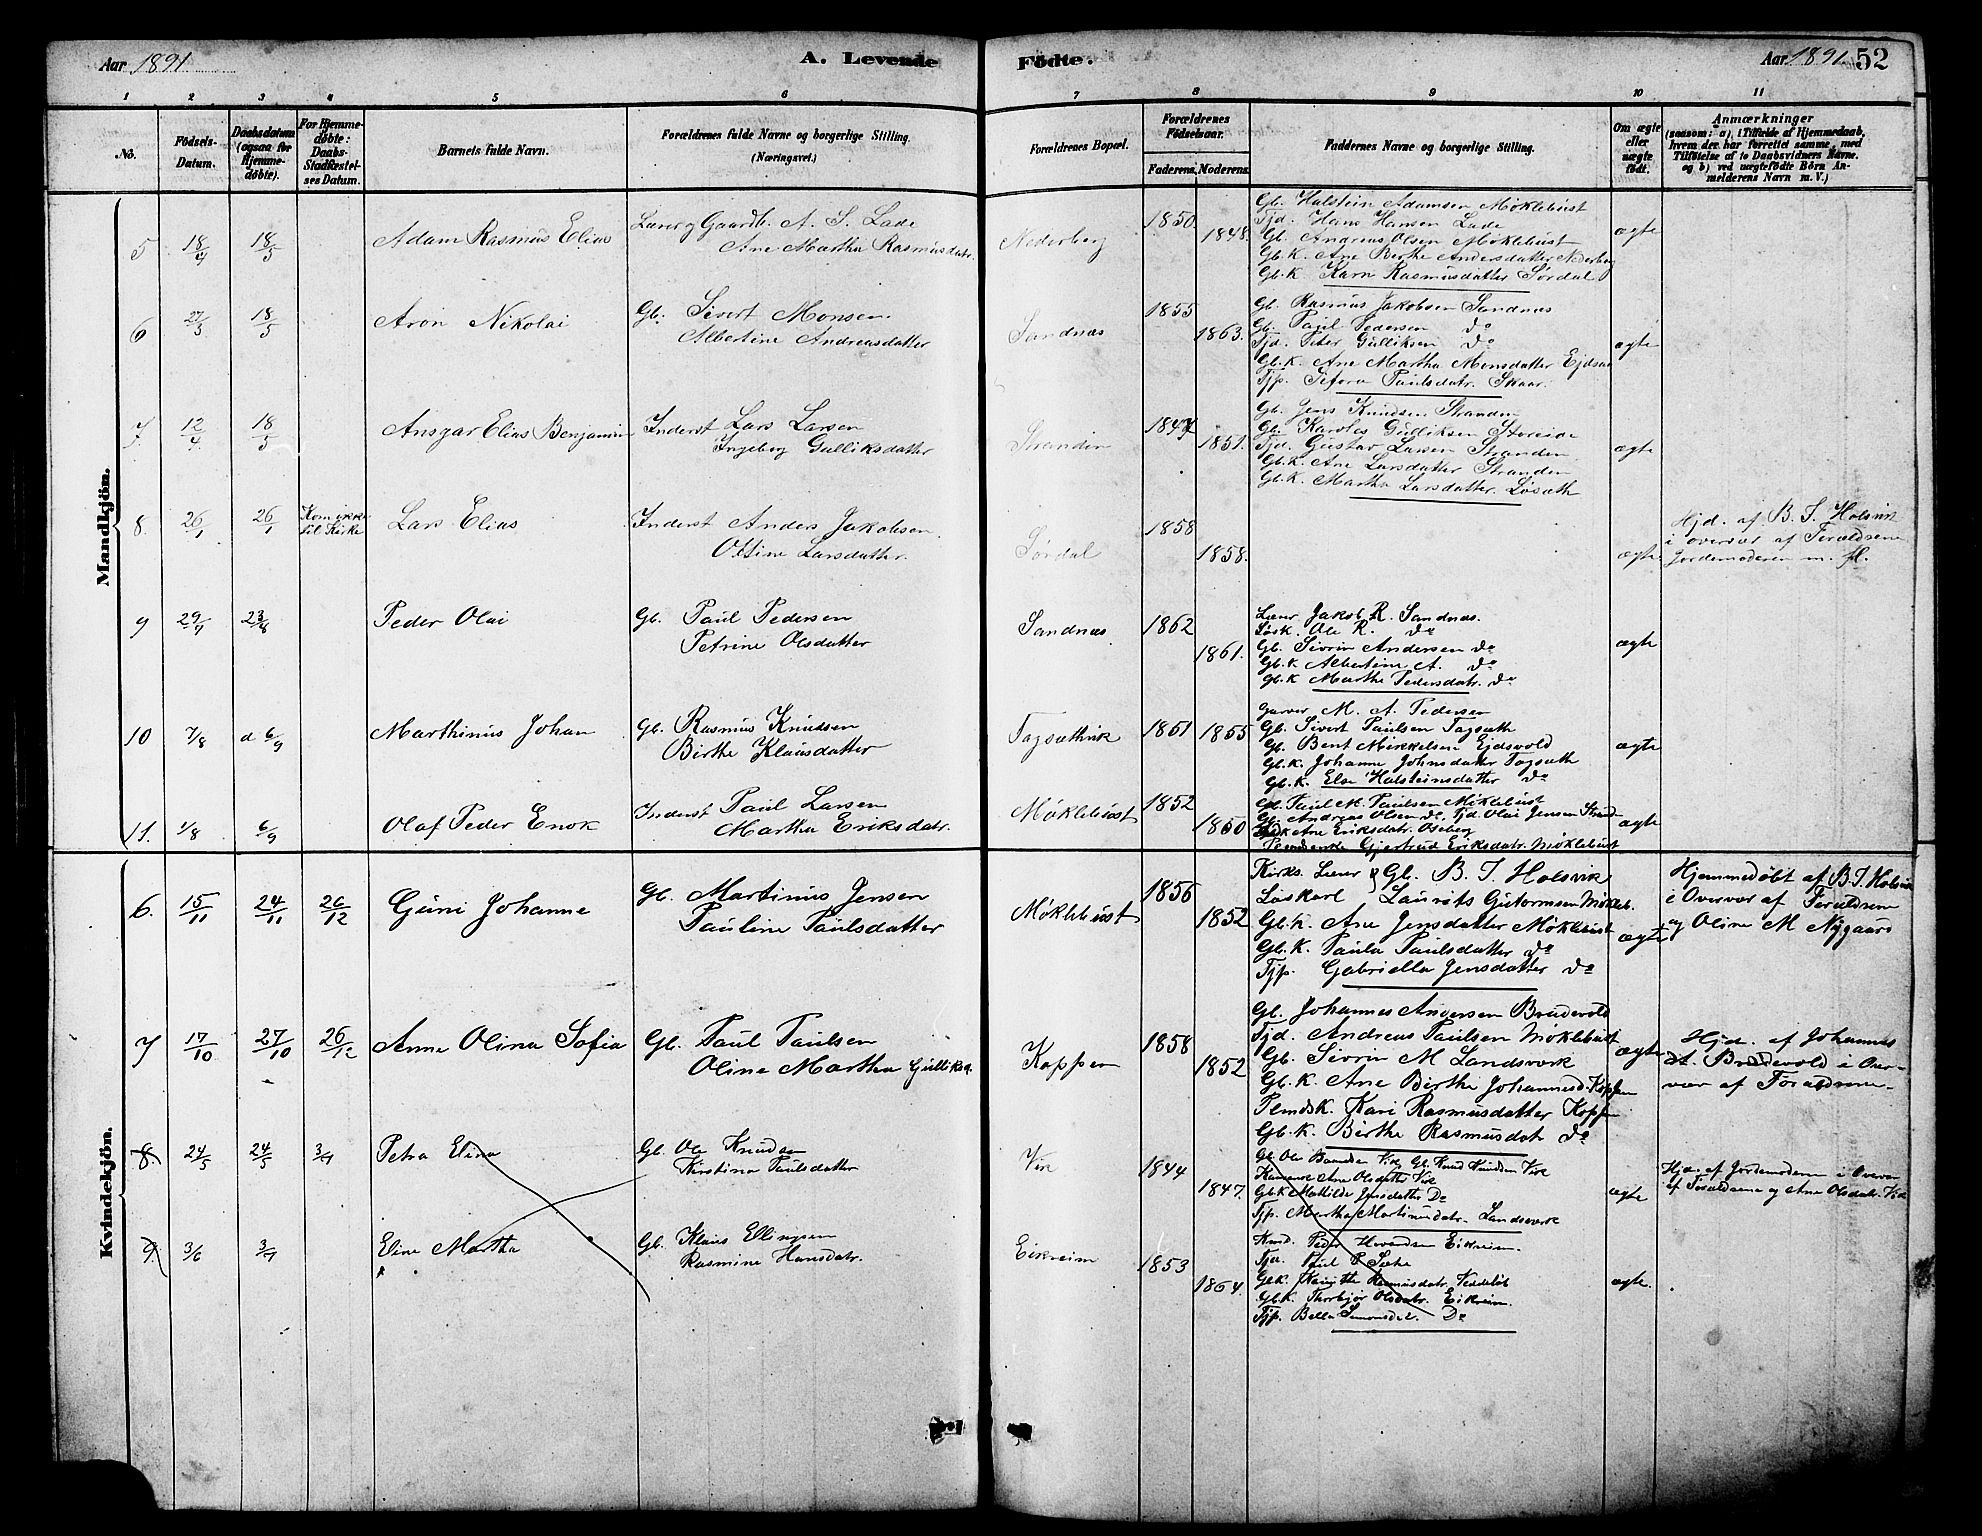 Aar 1891
A. Levende Födte.
Aar 1891. 52
1 2 3 4 5 6 7 8 9 10 11
No.
Födsels-Datum.
Daabsdatum (ogsaa for Hjemmedöbte).
For Hjemmedöbte: Daabs-Stadfæstelses Datum.
Barnets fulde Navn.
Forældrenes fulde Navne og borgerlige Stilling. (Næringsvei.)
Forældrenes Bopæl.
Forældrenes Födselsaar.
Faderens. Moderens.
Faddernes Navne og borgerlige Stilling.
Om ægte eller uægte födt.
Anmærkninger
(saasom: a) i Tilfælde af Hjemmedaab, hvem der har forrettet samme, med Tilföielse af to Daabsvidners Navne. og b) ved uægtefödte Börn Anmelderens Navn m. V.)
Mandkjön.
5 18/4 18/5 Adam Rasmus Elias
Lærer og Gaardb. A. S. Lade
Ane Martha Rasmusdatr.
Nederberg 1850 1848.
Gb. Halstein Adamsen Möklebust
Tjd. Hans Hansen Lade
Gb. Andreas Olsen Möklebust
Gb.K. Ane Birthe Andersdatter Nederberg
Gb.K. Karn Rasmusdatter Sördal
ægte
6 27/3 18/5 Aron Nikolai
Gb. Sivert Monsen
Albertine Andreasdatter
Sandnæs 1855 1863.
Gb. Rasmus Jakobsen Sandnæs
Gb. Paul Pedersen do
Tjd. Peter Gulliksen do
Gb.K. Ane Martha Monsdatter
Tjp. Sefora Paulsdatr. Skaar.
ægte
7. 12/4 18/5 Ansgar Elias Benjamin
Inderst Lars Larsen
Ingeborg Gulliksdatter
Stranden 1847 1851.
Gb. Jens Knudsen Stranden
Gb. Karolus Gulliksen Storeide
Tjd. Gustav Larsen Stranden
Gb.K. Ane Larsdatter Stranden
Gb.K. Martha Larsdatter Lösæth
ægte
8. 26/1 26/1 Kom ikke til Kirke Lars Elias
Inderst Anders Jakobsen.
Oltine Larsdatter.
Sördal 1858 1858.
ægte
Hjd. af B. I. Holsvik
i overvær af Forældrene
Jordemoderen m. fl.
9 29/7 23/8 Peder Olai
Gb. Paul Pedersen
Petrine Olsdatter
Sandnæs 1862 1861.
Lærer Jakob R. Sandnæs.
Lösk. Ole R. do
Gb. Sivrin Andersen do
Gb.K Albertine A. do
Gb.K Marthe Pedersdatr. do
ægte
10 7/8 d 6/9 Marthinus Johan
Gb. Rasmus Knudsen
Birthe Klausdatter
Tagsæthvik 1861 1865
Garver M. A. Pedersen
Gb. Sivert Paulsen Tagsæth
Gb. Bent Mikkelsen Ejdsvold
Gb.K. Johanne Johnsdatter Tagsæth
Gb.K. Else Halsteinsdatter do
ægte
11. 1/8 6/9 Olaf Peder Enok
Inderst Paul Larsen
Martha Eriksdatr.
Möklebust 1852 1850
Gb. Paul M. Paulsen Möklebust
Gb. Andreas Olsen do, Tjd. Olai Jensen
Ane Eriksdatr. Oseberg
Gjertrud Eriksdatr. Möklebust
ægte
Kvindekjön.
6. 15/11 24/11 26/12 Guni Johanne
Gb. Martinus Jensen
Pauline Paulsdatter
Möklebust 1856 1852
Kirks. Lærer & Gb. B. I. Holsvik
Löskarl Laurits Guttormsen Mökleb.
Gb.K. Ane Jensdatter Möklebust
Gb.K. Paula Paulsdatter do
Tjp. Gabriella Jensdatter do
ægte
Hjemmedöbt af B. I. Holsvik
i Overvær af Forældrene
og Oline M Nygaard
7 17/10 27/10 26/12 Anne Olina Sofia
Gb. Paul Paulsen
Oline Martha Gulliksd.
Koppen 1858 1852
Gb. Johannes Andersen Brudevold
Tjd. Andreas Paulsen Möklebust
Gb. Sivrin M Landsverk
Gb.K. Ane Birthe Johannesd. Koppen
Kari Rasmusdatter Koppen
Gb.K. Birthe Rasmusdatr do
ægte
Hjd. af Johannes
A. Brudevold i Over-
vær af Forældrene
8. 24/5 24/5 3/7 Petra Elina
Gb. Ole Knudsen
Kirstina Paulsdatter
Vik 1844 1847.
Gb. Ole Vik, Gb. Knud Knudsen Vik
Ane Olsdatter Vik
Gb.K Mathilde Jensdatter Do
Tjp. Martha Martinusdatr. Landsverk
ægte
Hjd. af Jordemoderen i Overvær
af Forældrene og Ane Olsdatr. Vik
9. 3/6 3/7 Eline Martha
Gb. Klaus Ellingsen
Rasmine Hansdatr.
Eikreim 1853 1864.
Peder Eikreim.
Tjd. Paul P Sæthe
Gb.K. Rasmusdatr.
Gb.K. Thorbjör Olsdatr. Eikreim.
Tjp. Bella Simonsdat. Do
ægte.